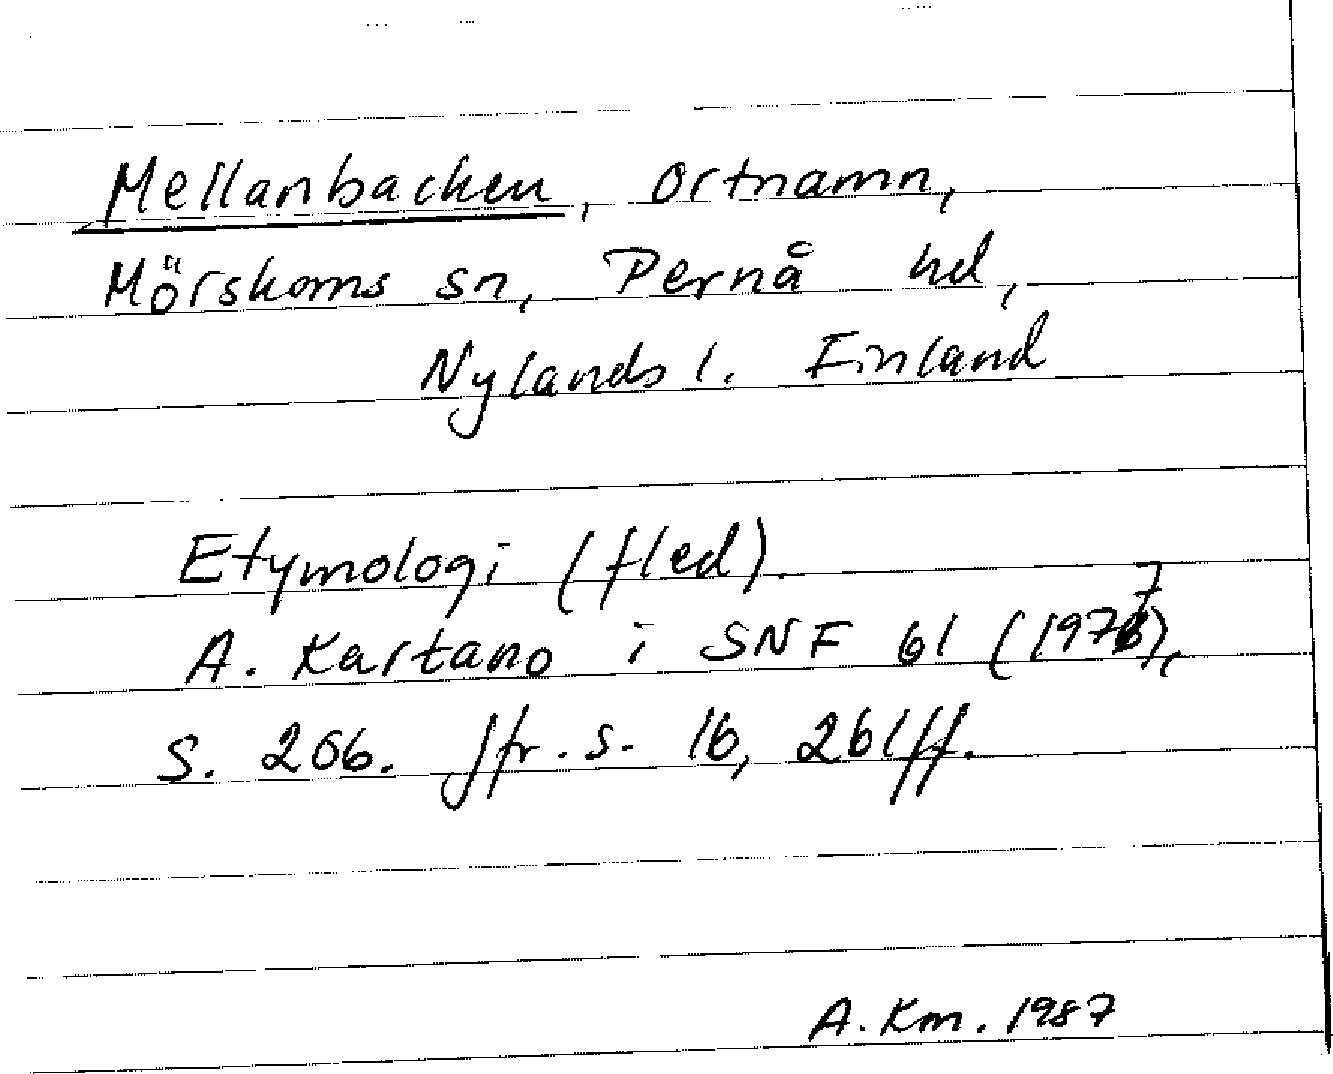 Mellanbacken, ortnamn,
Mörskoms sn, Pernå hd,
Nylands l. Finland
Etymologi (fled).
A. Kartano i SNF 61 (1977),
S. 206. Jfr. s. 16, 261ff.
A. Km. 1987